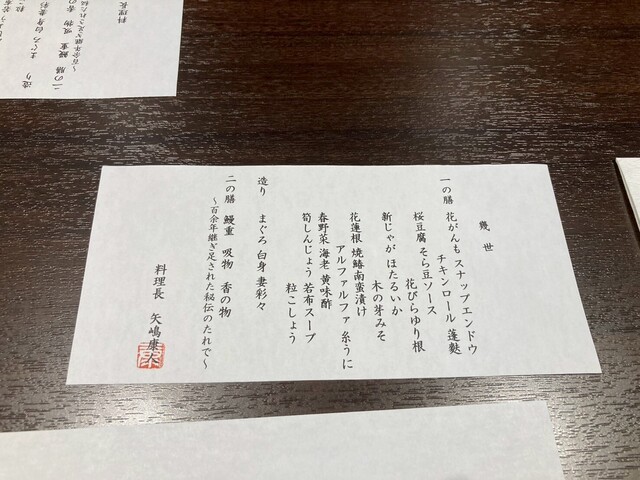 幾世
一の膳 花がんも スナップエンドウ
チキンロール 蓬麩
桜豆腐 そら豆ソース
花びらゆり根
新じゃが ほたるいか
木の芽みそ
花蓮根 焼鰆南蛮漬け
アルファルファ 糸うに
春野菜 海老 黄味酢
筍しんじょう 若布スープ
粒こしょう
造り まぐろ 白身 妻彩々
二の膳 鰻重 吸物 香の物
～百余年継ぎ足された秘伝のたれで～
料理長 矢嶋康
造り まぐろ 白身 妻彩
二の膳 鰻重 吸物 香の
～百余年継ぎ足された秘
料理長